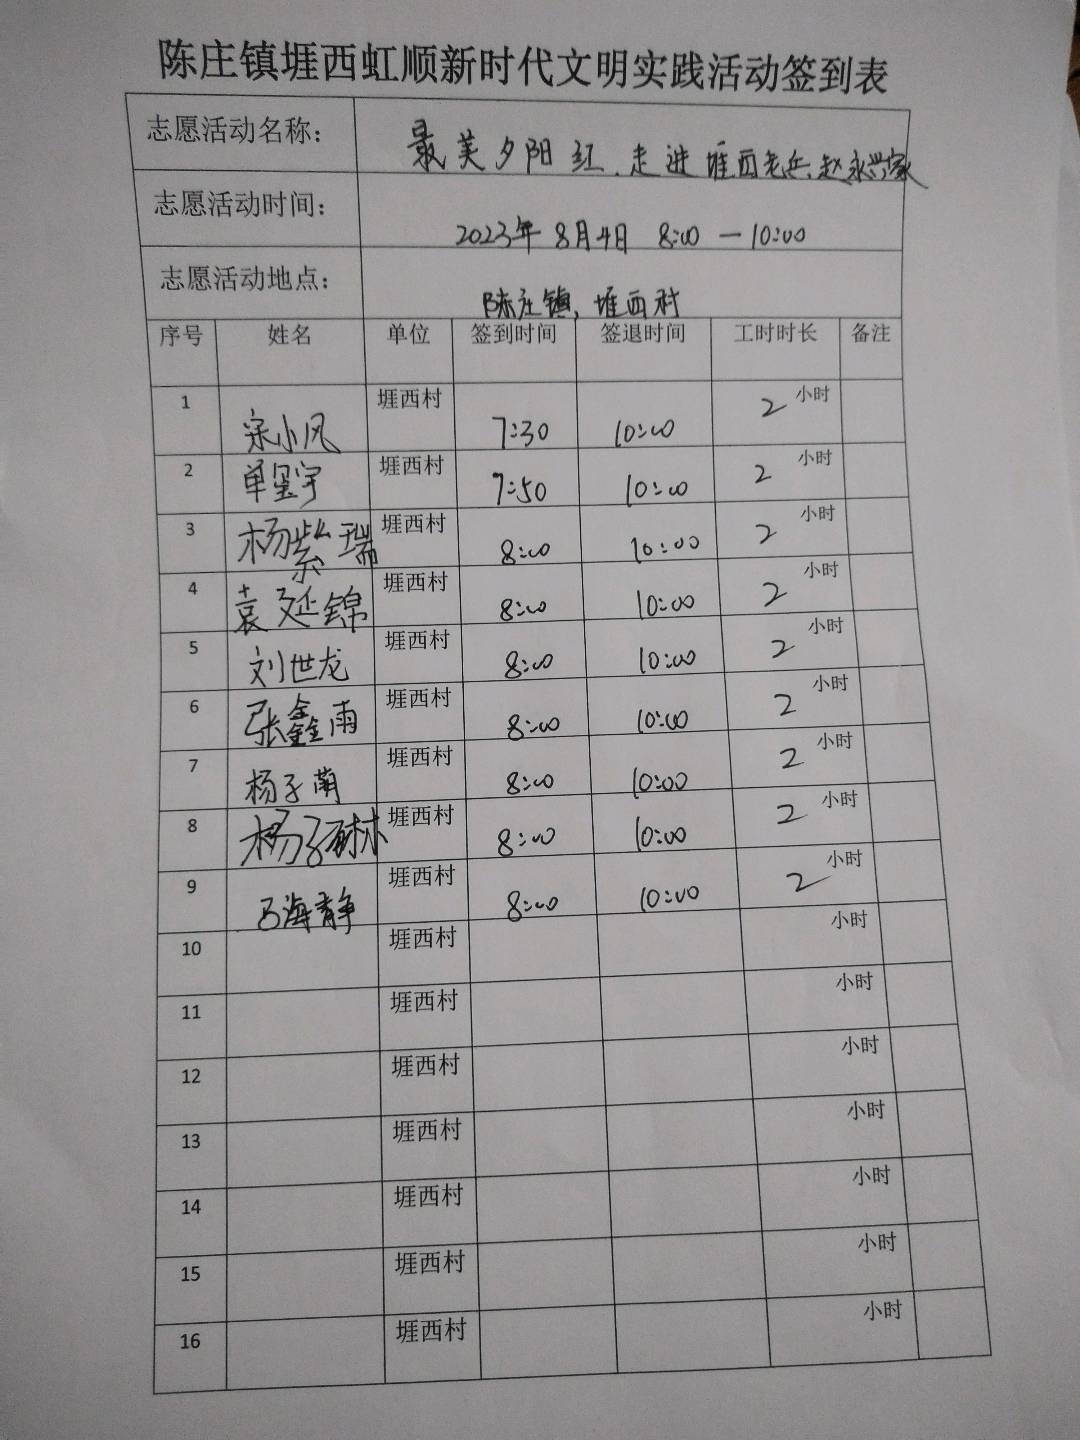 陈庄镇堐西虹顺新时代文明实践活动签到表
志愿活动名称： 最美夕阳红.走进堐西老兵.赵永兴家
志愿活动时间： 2023年8月4日 8:00 — 10:00
志愿活动地点： 陈庄镇,堐西村
序号 姓名 单位 签到时间 签退时间 工时时长 备注
1 宋小风 堐西村 7:30 10:00 2 小时
2 单玺宇 堐西村 7:50 10:00 2 小时
3 杨紫瑞 堐西村 8:00 10:00 2 小时
4 袁延锦 堐西村 8:00 10:00 2 小时
5 刘世龙 堐西村 8:00 10:00 2 小时
6 张鑫雨 堐西村 8:00 10:00 2 小时
7 杨子菊 堐西村 8:00 10:00 2 小时
8 杨子 堐西村 8:00 10:00 2 小时
9 海静 堐西村 8:00 10:00 2 小时
10 堐西村 小时
11 堐西村 小时
12 堐西村 小时
13 堐西村 小时
14 堐西村 小时
15 堐西村 小时
16 堐西村 小时